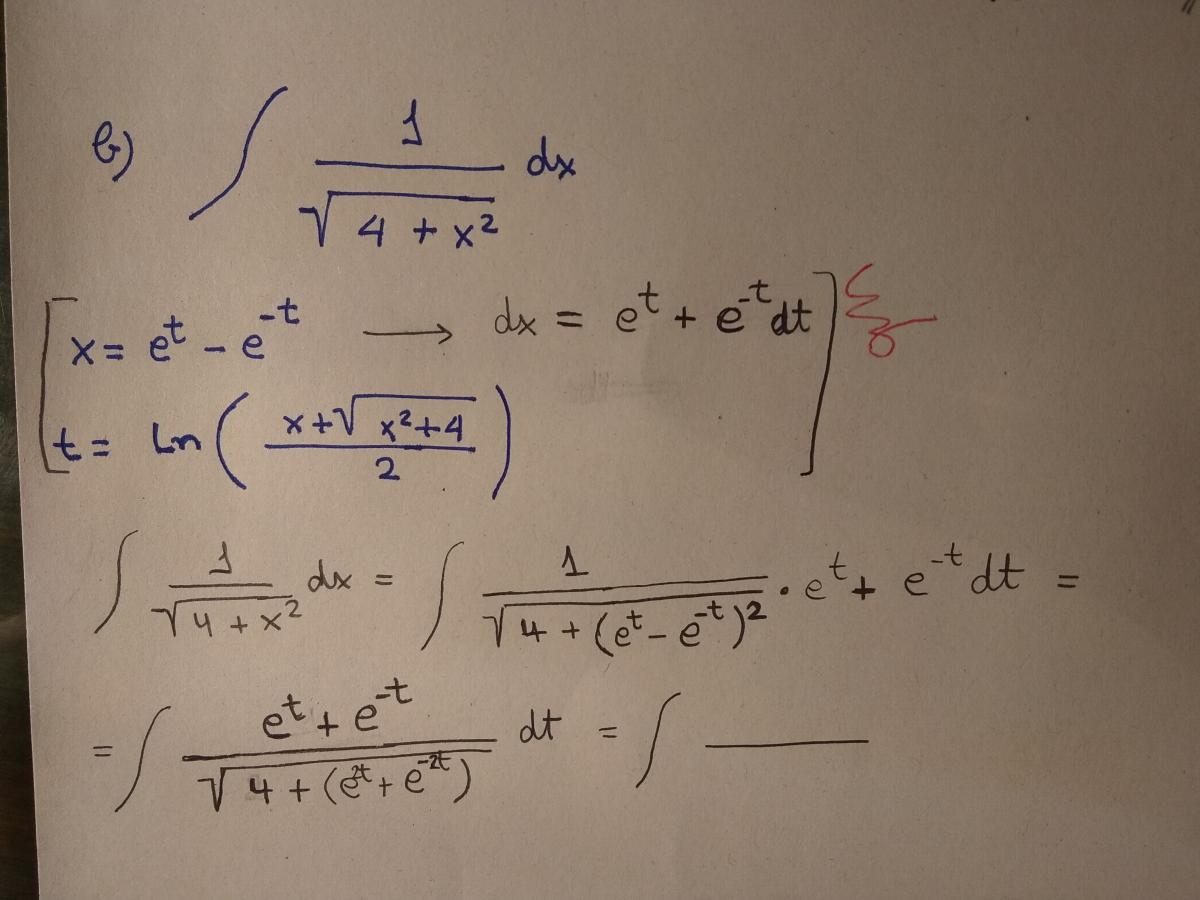 b) ∫ 1/√(4 + x²) dx
[ x = e^t - e^-t → dx = e^t + e^-t dt ]
t = Ln( (x+√(x²+4))/2 )
∫ 1/√(4 + x²) dx = ∫ 1/√(4 + (e^t - e^-t)²) · e^t + e^-t dt =
= ∫ (e^t + e^-t)/√(4 + (e^2t + e^-2t)) dt = ∫ ———